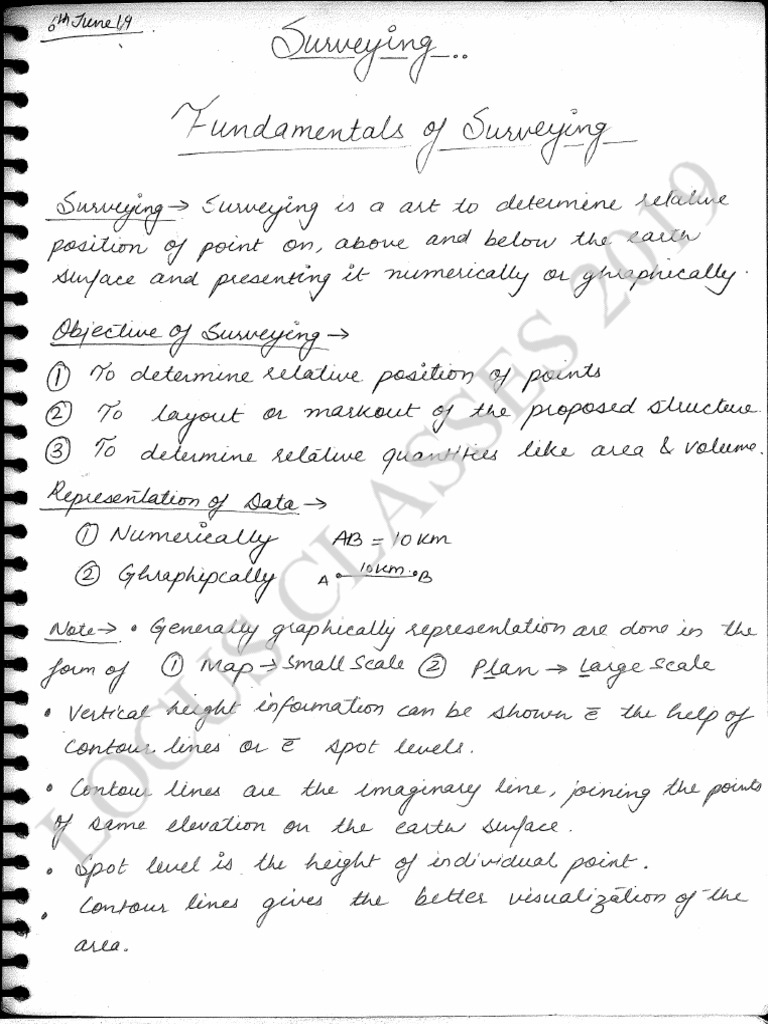 6th June 19
Surveying..
Fundamentals of Surveying
Surveying → Surveying is a art to determine relative
position of point on, above and below the earth
surface and presenting it numerically or ghraphically.
Objective of Surveying →
① To determine relative position of points
② To layout or markout of the proposed structure
③ To determine relative quantities like area & volume.
Representation of Data →
① Numerically AB = 10 km
② Ghraphipcally A 10km B
Note → • Generally graphically representation are done in the
form of ① Map → Small Scale ② Plan → Large Scale
• Vertical height information can be shown c̄ the help of
contour lines or c̄ spot levels.
• Contour lines are the imaginary line, joining the points
of same elevation on the earth surface.
• Spot level is the height of individual point.
• Contour lines gives the better visualization of the
area.
LOCUS CLASSES 2019